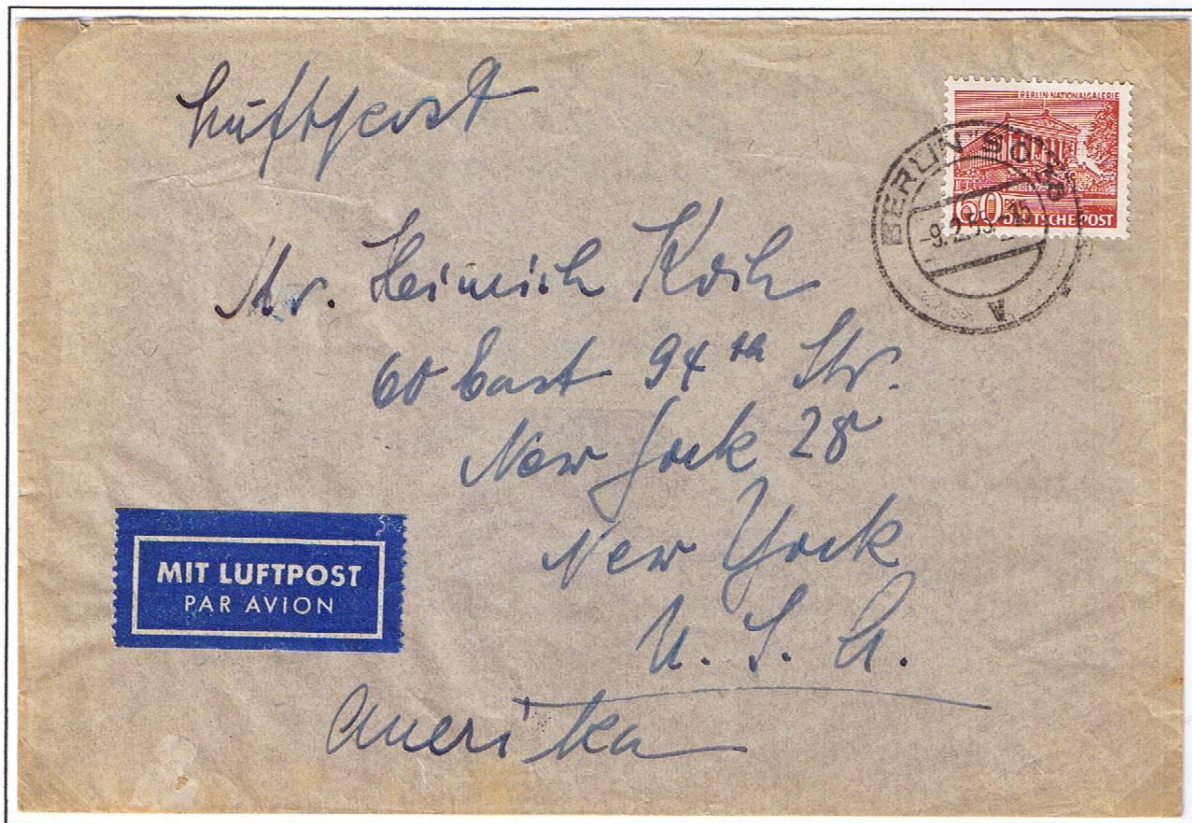 Luftpost
BERLIN NATIONALGALERIE
60 DEUTSCHE POST
BERLIN SO 36
-9.2.53.-15
A
Mr. Heinrich Koch
60 East 94th Str.
New York 28
New York
U. S. A.
MIT LUFTPOST
PAR AVION
Amerika